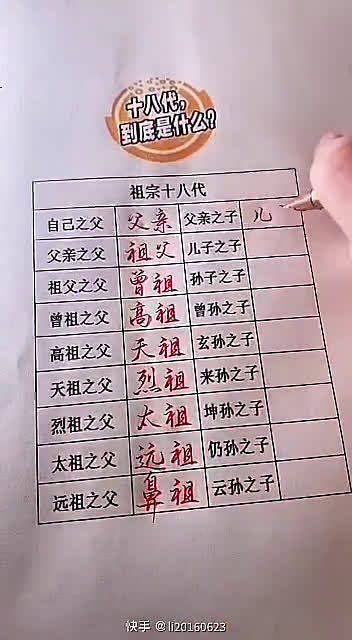 十八代,
到底是什么?
祖宗十八代
自己之父 父亲 父亲之子 儿
父亲之父 祖父 儿子之子
祖父之父 曾祖 孙子之子
曾祖之父 高祖 曾孙之子
高祖之父 天祖 玄孙之子
天祖之父 烈祖 来孙之子
烈祖之父 太祖 坤孙之子
太祖之父 远祖 仍孙之子
远祖之父 鼻祖 云孙之子
快手 @li20160623